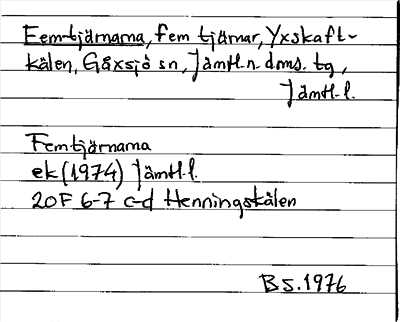 Femtjärnarna, fem tjärnar, Yxskaft-
kälen, Gåxsjö sn, Jämtl. n. dms. tg,
Jämtl. l.
Femtjärnarna
ek (1974) Jämtl. l.
20F 6-7 c-d Henningskälen
BS. 1976